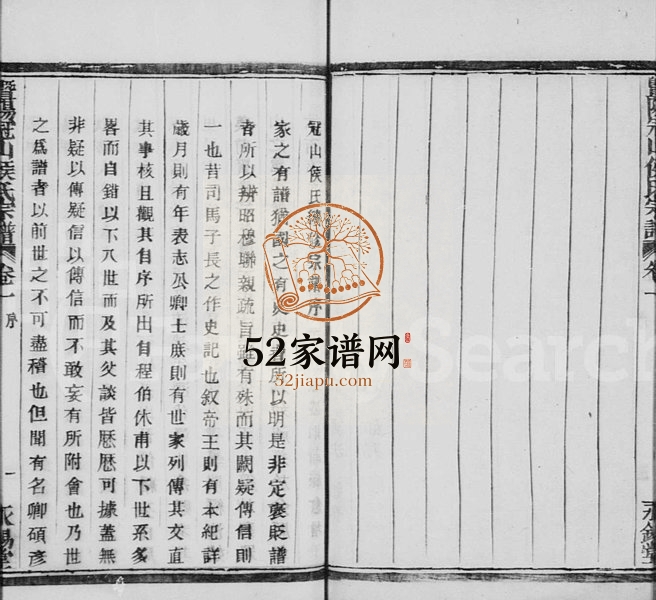 冠山侯氏總修宗譜序
家之有譜猶國之有史史所以明是非定襃貶譜
者所以辨昭穆聯親疏旨雖有殊而其闕疑傳信則
一也昔司馬子長之作史記也叙帝王則有本紀詳
歲月則有年表志公卿士庻則有世家列傳其文直
其事核且觀其自序所出自程伯休甫以下世系多
畧而自錯以下八世而及其父談皆厯厯可據蓋無
非疑以傳疑信以傳信而不敢妄有所附會也乃世
之爲譜者以前世之不可盡稽也但聞有名卿碩彥
暨陽冠山侯氏宗譜
卷一 序
一
永錫堂
52家谱网
52jiapu.com
Search